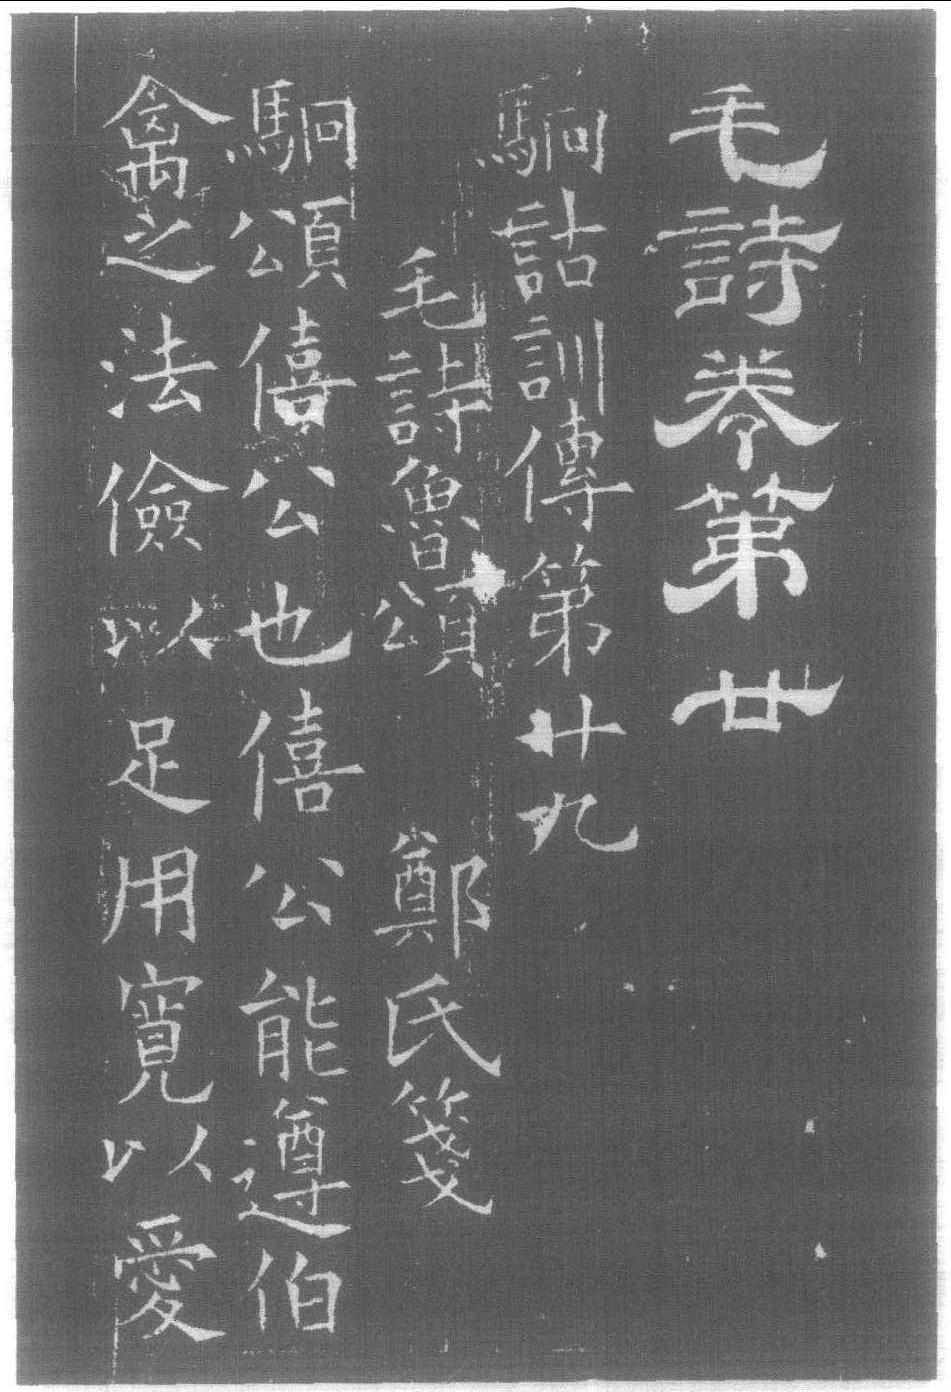 毛詩卷第廿
駉詁訓傳第廿九
毛詩魯頌 鄭氏箋
駉頌僖公也僖公能遵伯
禽之法儉以足用寬以愛